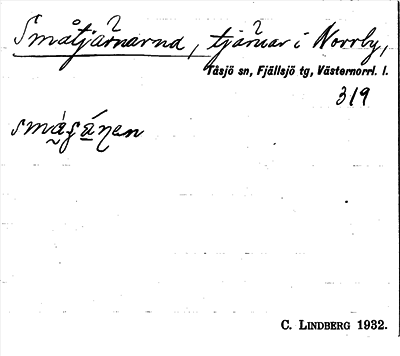 Småtjärnarna, tjärnar i Norrby,
Tåsjö sn, Fjällsjö tg, Västernorrl. l.
319
C. LINDBERG 1932.